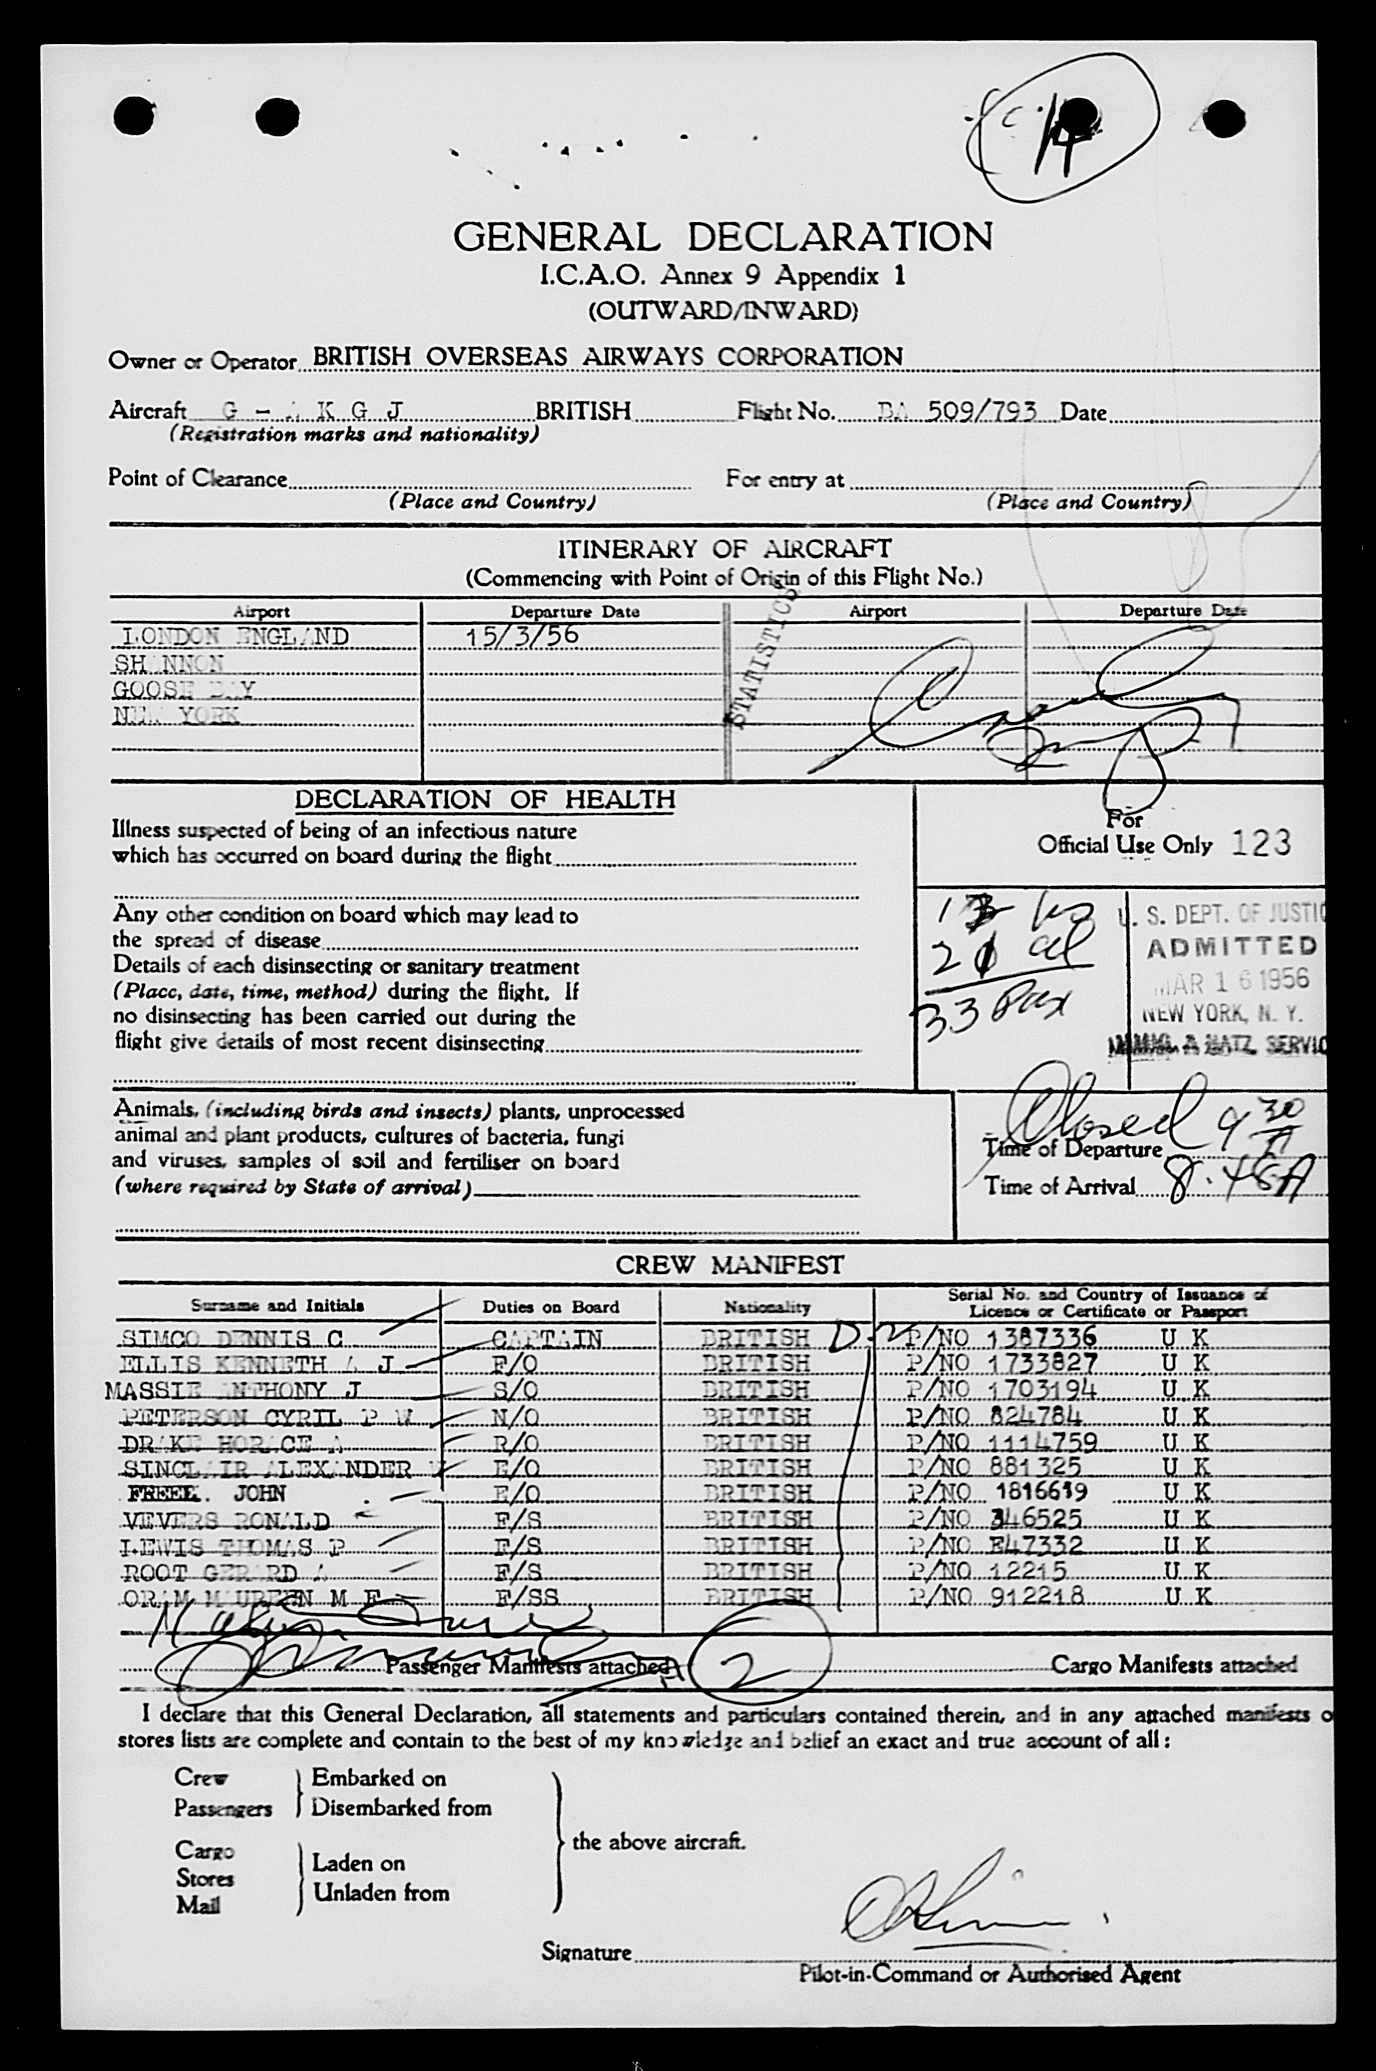 14
GENERAL DECLARATION
I.C.A.O. Annex 9 Appendix 1
(OUTWARD/INWARD)
Owner or Operator BRITISH OVERSEAS AIRWAYS CORPORATION
Aircraft G - A K G J BRITISH Flight No. BA 509/793 Date
(Registration marks and nationality)
Point of Clearance For entry at
(Place and Country) (Place and Country)
ITINERARY OF AIRCRAFT
(Commencing with Point of Origin of this Flight No.)
Airport Departure Date Airport Departure Date
LONDON ENGLAND 15/3/56
SHANNON
GOOSE BAY
NEW YORK
STATISTICS
DECLARATION OF HEALTH
Illness suspected of being of an infectious nature
which has occurred on board during the flight
For
Official Use Only 123
Any other condition on board which may lead to
the spread of disease
Details of each disinsecting or sanitary treatment
(Place, date, time, method) during the flight. If
no disinsecting has been carried out during the
flight give details of most recent disinsecting
33 Pax
U. S. DEPT. OF JUSTIC
ADMITTED
MAR 16 1956
NEW YORK, N. Y.
IMMIG. & NATZ. SERVIC
Animals, (including birds and insects) plants, unprocessed
animal and plant products, cultures of bacteria, fungi
and viruses, samples of soil and fertiliser on board
(where required by State of arrival)
Closed 9 30 A
Time of Departure
Time of Arrival 8.45A
CREW MANIFEST
Surname and Initials Duties on Board Nationality Serial No. and Country of Issuance of Licence or Certificate or Passport
SIMCO DENNIS C CAPTAIN BRITISH D-2 P/NO 1387336 U K
ELLIS KENNETH A J F/O BRITISH P/NO 1733827 U K
MASSIE ANTHONY J S/O BRITISH P/NO 1703194 U K
PETERSON CYRIL P W N/O BRITISH P/NO 824784 U K
DRAKE HORACE A R/O BRITISH P/NO 1114759 U K
SINCLAIR ALEXANDER E/O BRITISH P/NO 881325 U K
FREEK. JOHN E/O BRITISH P/NO 1816619 U K
VEVERS RONALD F/S BRITISH P/NO 346525 U K
LEWIS THOMAS P F/S BRITISH P/NO E47332 U K
ROOT GERARD A F/S BRITISH P/NO 12215 U K
ORAM MAUREEN M E F/SS BRITISH P/NO 912218 U K
Passenger Manifests attached 2 Cargo Manifests attached
I declare that this General Declaration, all statements and particulars contained therein, and in any attached manifests o
stores lists are complete and contain to the best of my knowledge and belief an exact and true account of all:
Crew Embarked on
Passengers Disembarked from
the above aircraft.
Cargo
Stores Laden on
Mail Unladen from
Signature
Pilot-in-Command or Authorised Agent